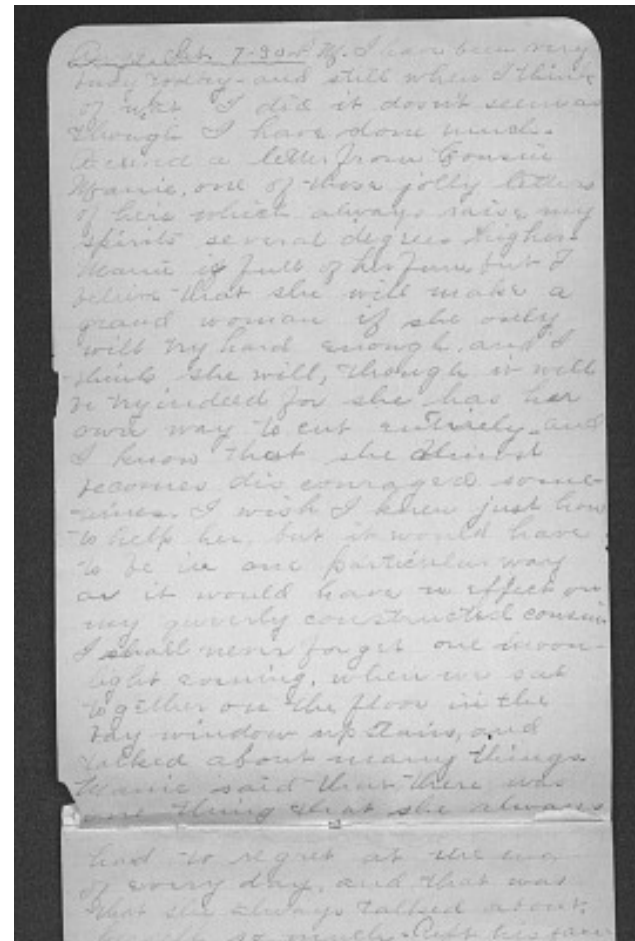 7-30 P.M. I have been very
busy today - and still when I think
of what I did it don't seem as
though I have done much.
Received a letter from Cousin
Mamie, one of those jolly letters
of hers which always raise my
spirits several degrees higher.
Mamie is full of her fun, but I
believe that she will make a
grand woman if she only
will try hard enough, and I
think she will, though it will
be try indeed for she has her
own way to cut entirely and
I know that she almost
becomes discouraged some-
times. I wish I knew just how
to help her, but it would have
to be in one particular way
or it would have no effect on
my queerly constructed cousin
I shall never forget one moon-
light evening, when we sat
together on the floor in the
bay window upstairs, and
talked about many things.
Mamie said that there was
one thing that she always
had to regret at the end
of every day, and that was
that she always talked about
so much.